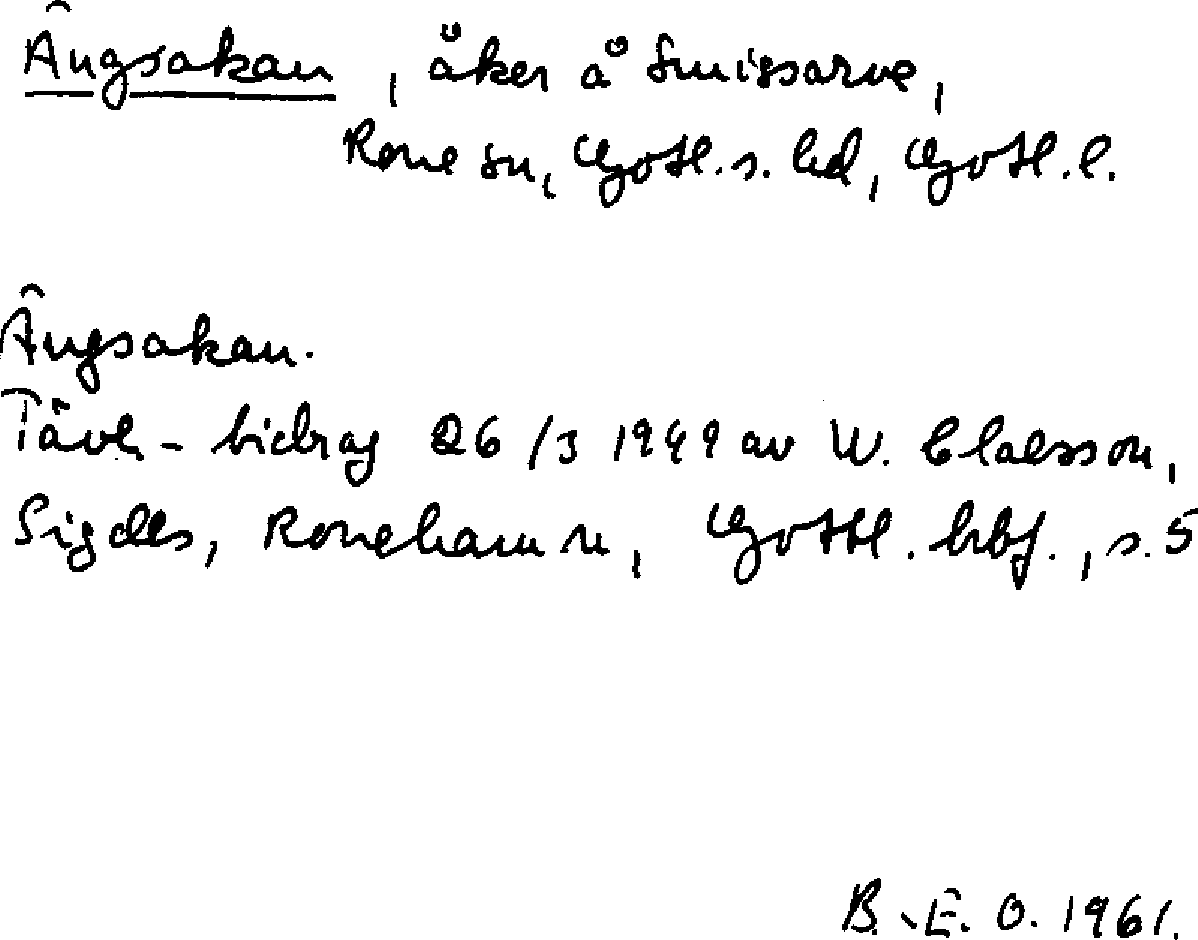 Ängsakan, åker å Smissarve,
Rone sn, Gotl.s. hd, Gotl.l.
Ängsakan.
Tävl-bidrag 26/3 1949 av W. Claesson,
Sigdes, Ronehamn, Gottl. hbf., s.5
B.E.O. 1961.